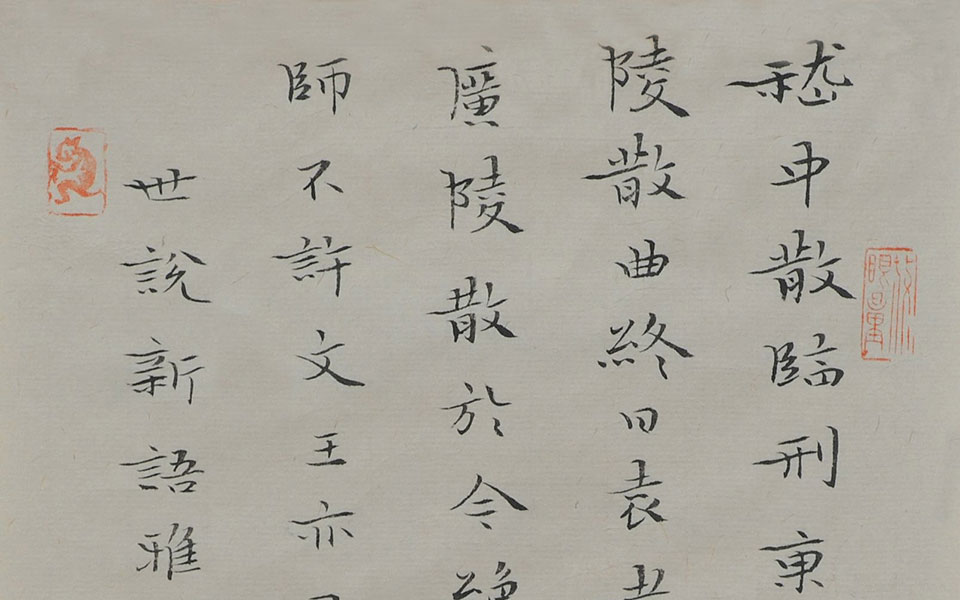 嵇中散臨刑東
陵散曲終曰袁
廣陵散於今絕
師不許文王亦
世說新語雅